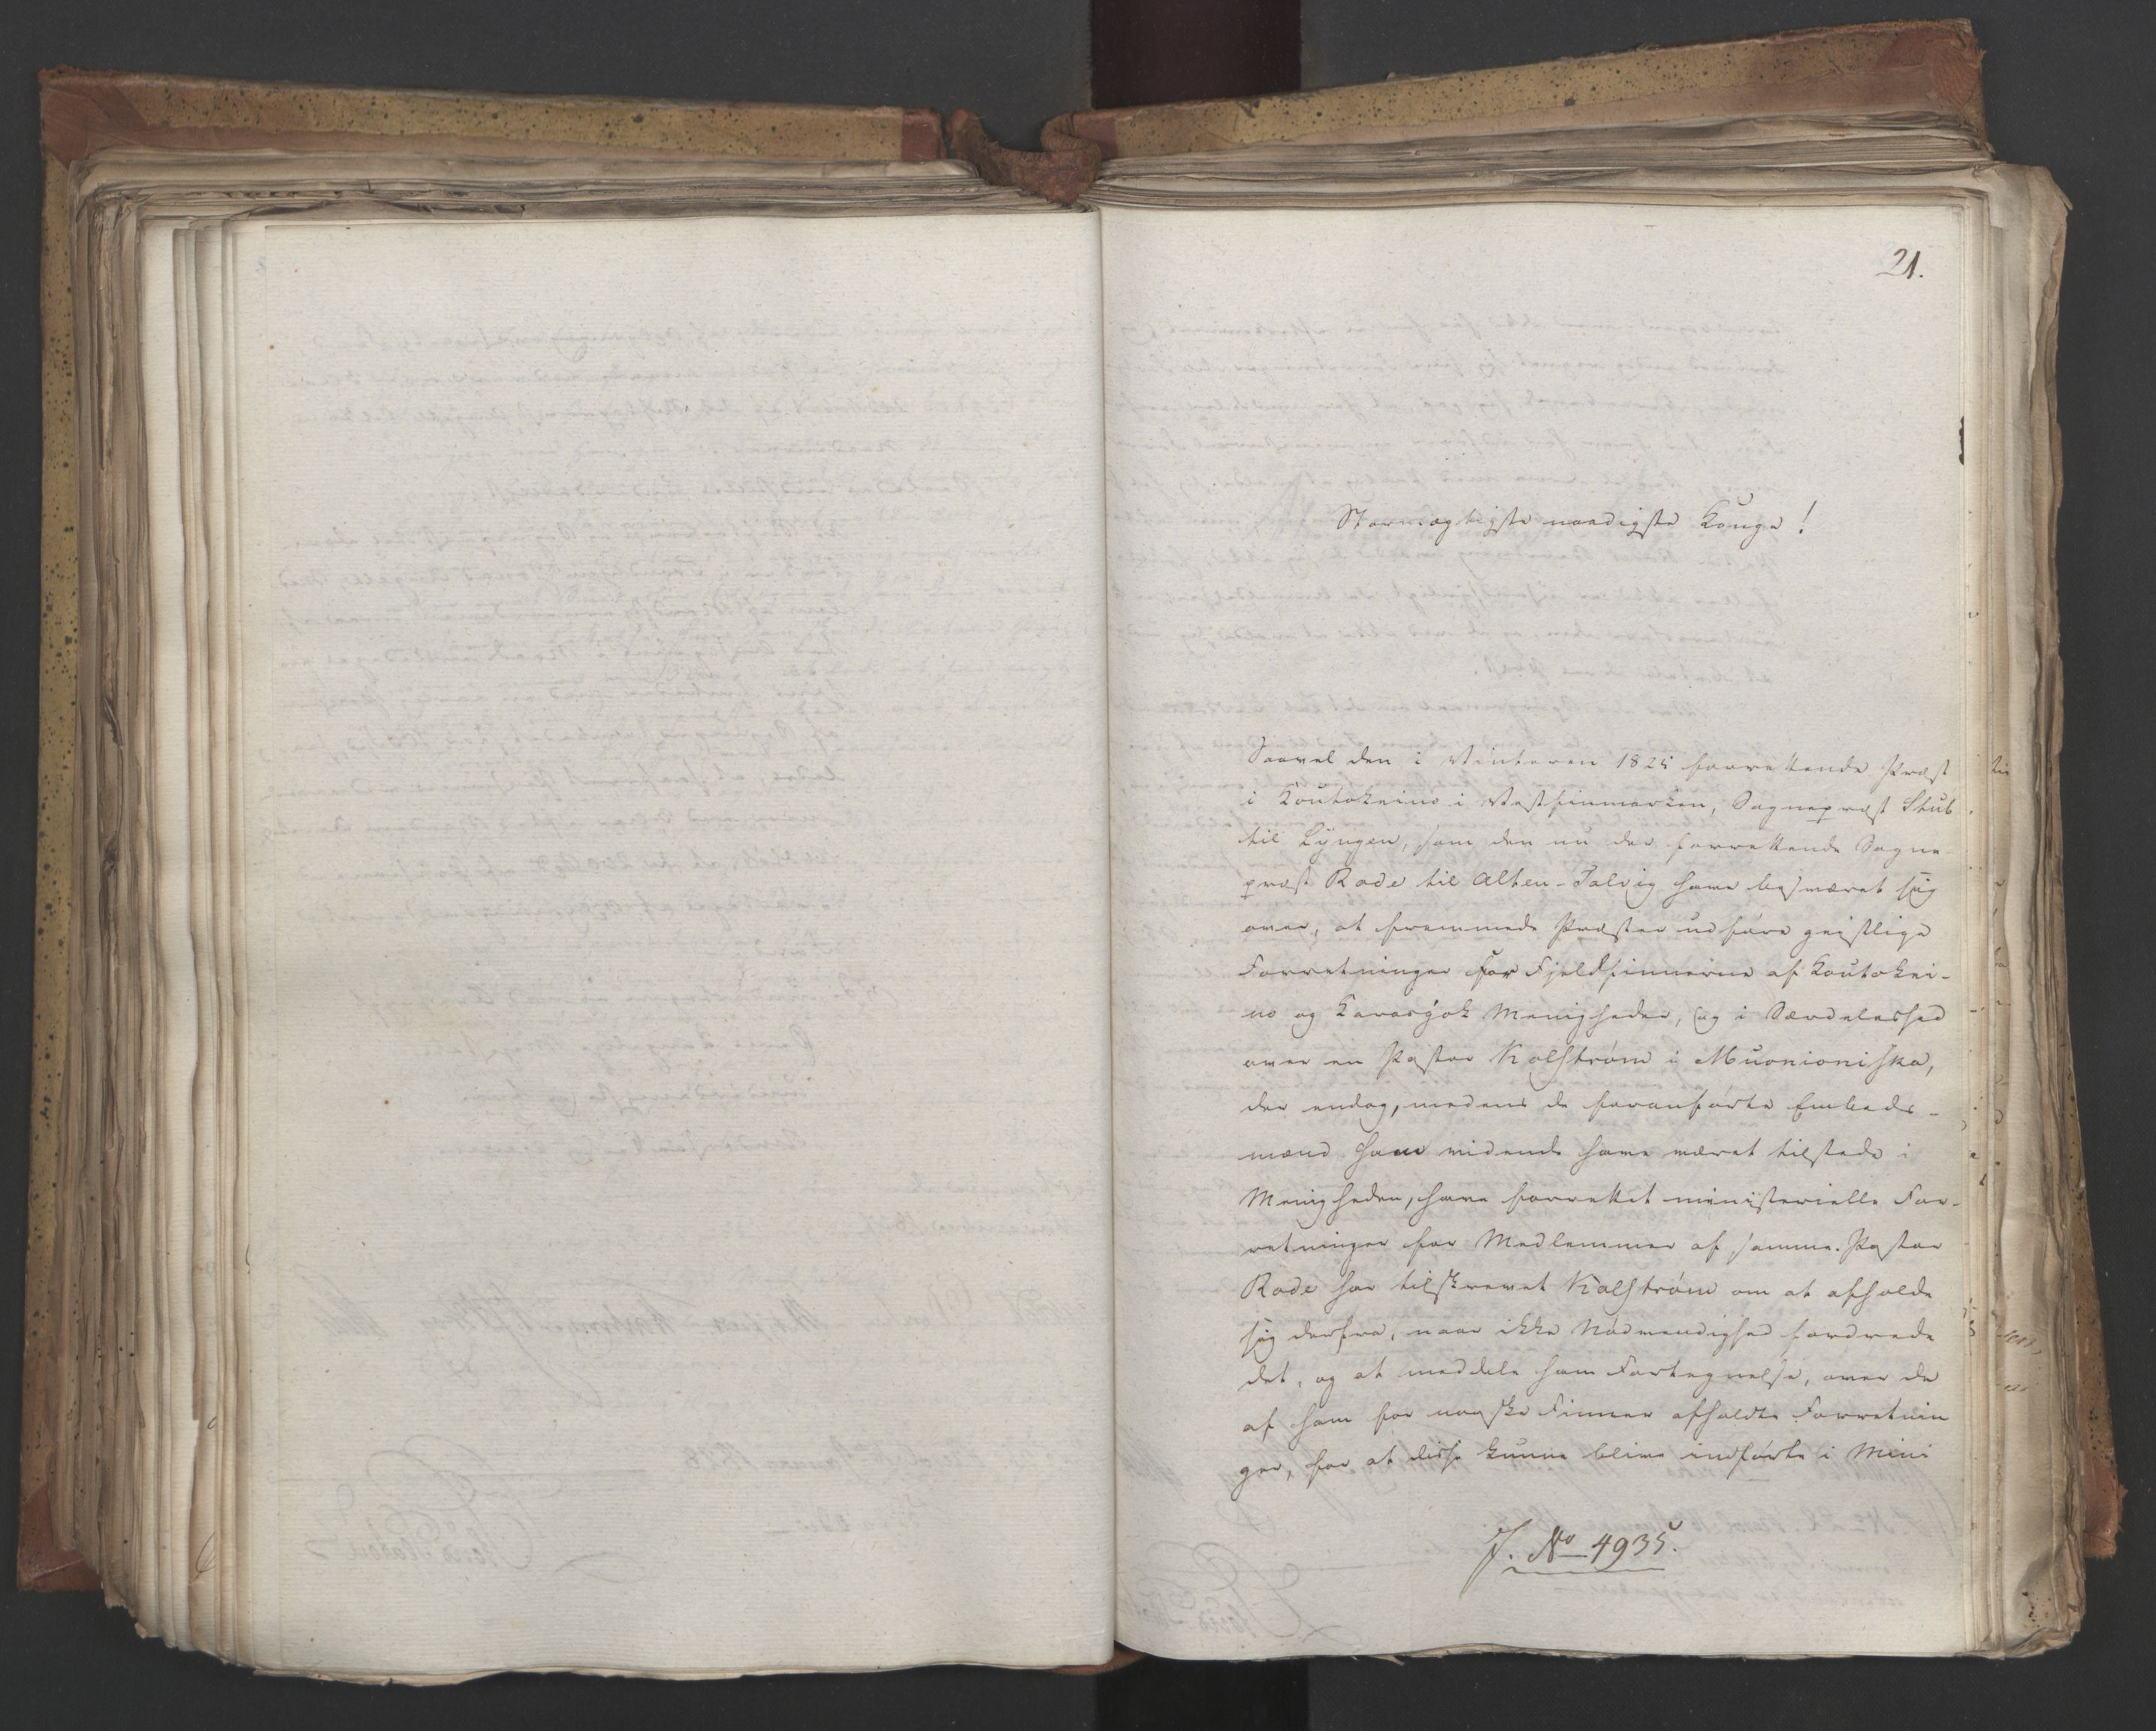 21.
Stormægtigste naadigste Konge!
Saavel den i Vinteren 1825 forrettende Præst
i Koutokeino i Vestfinmarken, Sognepræst Stub
til Lyngen, som den nu der forrettende Sogne-
præst Rode til Alten-Talvig have besværet sig
over, at fremmede Præster udføre geistlige
Forretninger for Fjeldfinnerne af Koutokei-
no og Karasjok Menigheder, og i Særdeleshed
over en Pastor Kolstrøm i Muonioniska,
der endog, medens de foranførte Embeds-
mænd ham vidende have været tilstede i
Menigheden, have forrettet ministerielle For-
retninger for Medlemmer af samme. Pastor
Rode har tilskrevet Kolstrøm om at afholde
sig derfra, naar ikke Nødvendighed fordrede
det, og at meddele ham Fortegnelse, over de
af ham for norske Finner afholdte Forretnin
ger, for at disse kunne blive indførte i Mini
J. No 4935.